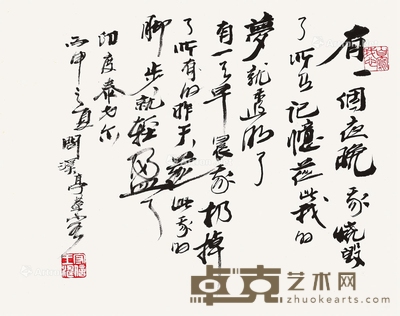 有一個夜晚我燒毁
了所有记憶從此我的
夢就透明了
有一天早晨我扔掉
了所有的昨天從此我的
脚步就輕盈了
印度泰戈尔
丙申之夏
卓克艺术网
www.zhuokearts.com